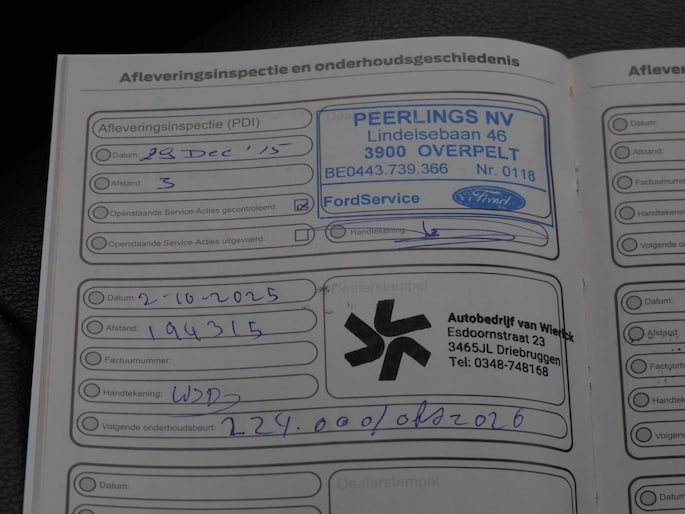 Afleveringsinspectie en onderhoudsgeschiedenis
Afleveringsinspectie (PDI)
Datum: 29 Dec '15
Afstand: 3
Openstaande Service-Acties gecontroleerd:
Openstaande Service-Acties uitgevoerd:
PEERLINGS NV
Lindelsebaan 46
3900 OVERPELT
BE0443.739.366 Nr. 0118
FordService Ford
Handtekening:
Datum: 2-10-2025
Afstand: 194315
Factuurnummer:
Handtekening:
Volgende onderhoudsbeurt: 224.000/ 2026
Dealerstempel
Autobedrijf van Wierick
Esdoornstraat 23
3465JL Driebruggen
Tel: 0348-748168
Datum:
Dealerstempel
Datum:
Afstand:
Handtekening
Volgende
Datum:
Afstand:
Volgen
Datum: